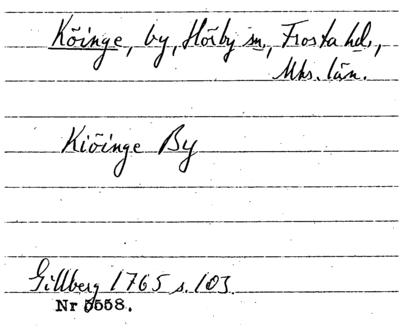 Kõinge, by, Hõrby sn., Frosta hd.,
Mhs. län.
Kiõinge By
Gillberg 1765 s. 103.
Nr 5558.